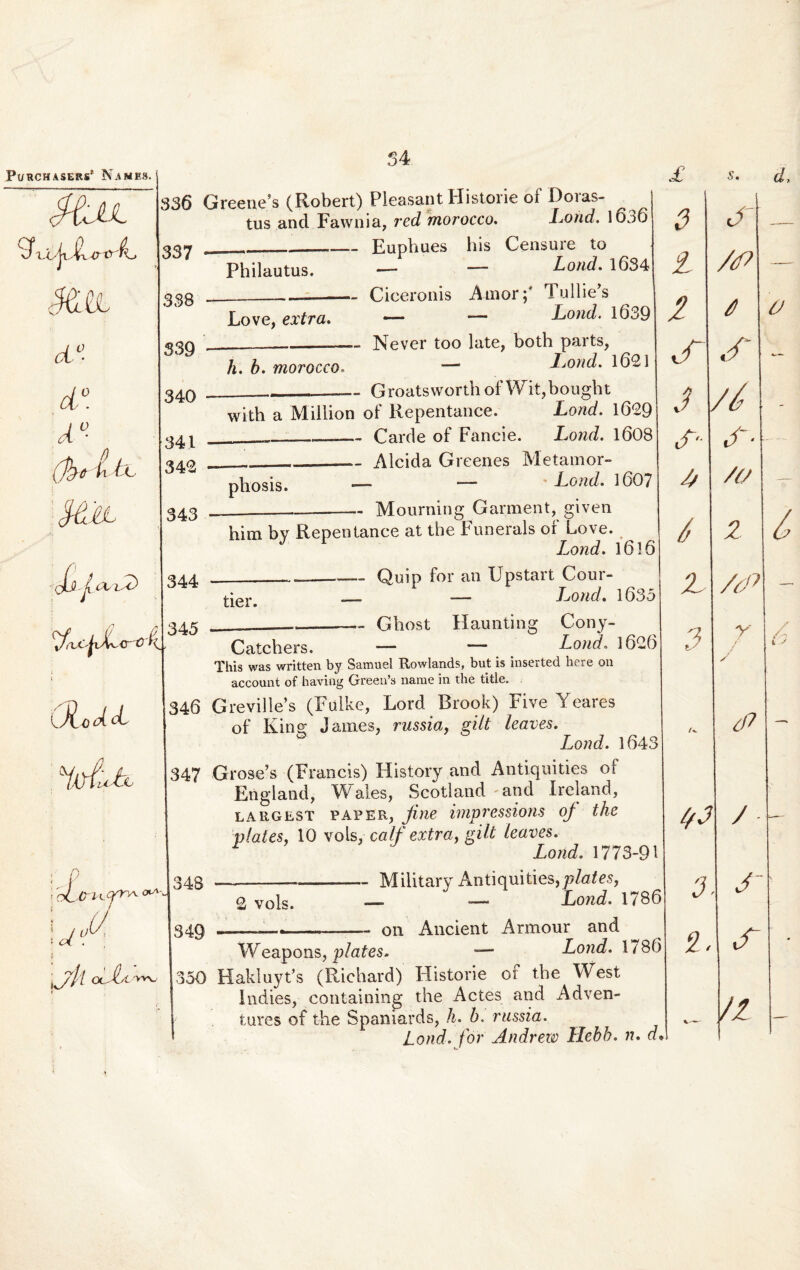 34
PURCHASERS' NAMES.
£ s. d.
Hill
336 Greene's (Robert) Pleasant Historie of Doras-
tus and Fawnia, red morocco. Lond. 1636
3 5 —
337 ———— Euphues his Censure to
Philautus. — — Lond. 1634
2 10 —
Hill
338 ———— Ciceronis Amor; Tullie's
Love, extra. — — Lond. 1639
2 0 0
do.
339 ———— Never too late, both parts,
h. b. morocco. — Lond. 1621
5 5 —
do.
340 ———— Groatsworth of Wit, bought
with a Million of Repentance. Lond. 1629
3 16 -
do.
341 ———— Carde of Fancie. Lond. 1608
5 5 -
342 ———— Alcida Greenes Metamor-
phosis. — — Lond. 1607
4 10 —
Hill
343 ———— Mourning Garment, given
him by Repentance at the Funerals of Love.
Lond. 1616
6 2 6
344 ———— Quip for an Upstart Cour-
tier. — — Lond. 1635
2 10 —
345 ———— Ghost Haunting Cony-
Catchers. — — Lond. 1626
3 7 6
This was written by Samuel Rowlands, but is inserted here on
account of having Green's name in the title.
Rodd
346 Greville's (Fulke, Lord Brook) Five Yeares
of King James, russia, gilt leaves.
Lond. 1643
347 Grose's (Francis) History and Antiquities of
England, Wales, Scotland and Ireland,
LARGEST PAPER, fine impressions of the
plates, 10 vols, calf extra, gilt leaves.
Lond. 1773-91
43 1 -
348 ———— Military Antiquities, plates,
2 vols. — — Lond. 1786
3 5
do.
349 ———— on Ancient Armour and
Weapons, plates. — Lond. 1786
2 5
350 Hakluyt's (Richard) Historie of the West
Indies, containing the Actes and Adven-
tures of the Spaniards, h. b. russia.
Lond. for Andrew Hebb. n. d.
— 12 —